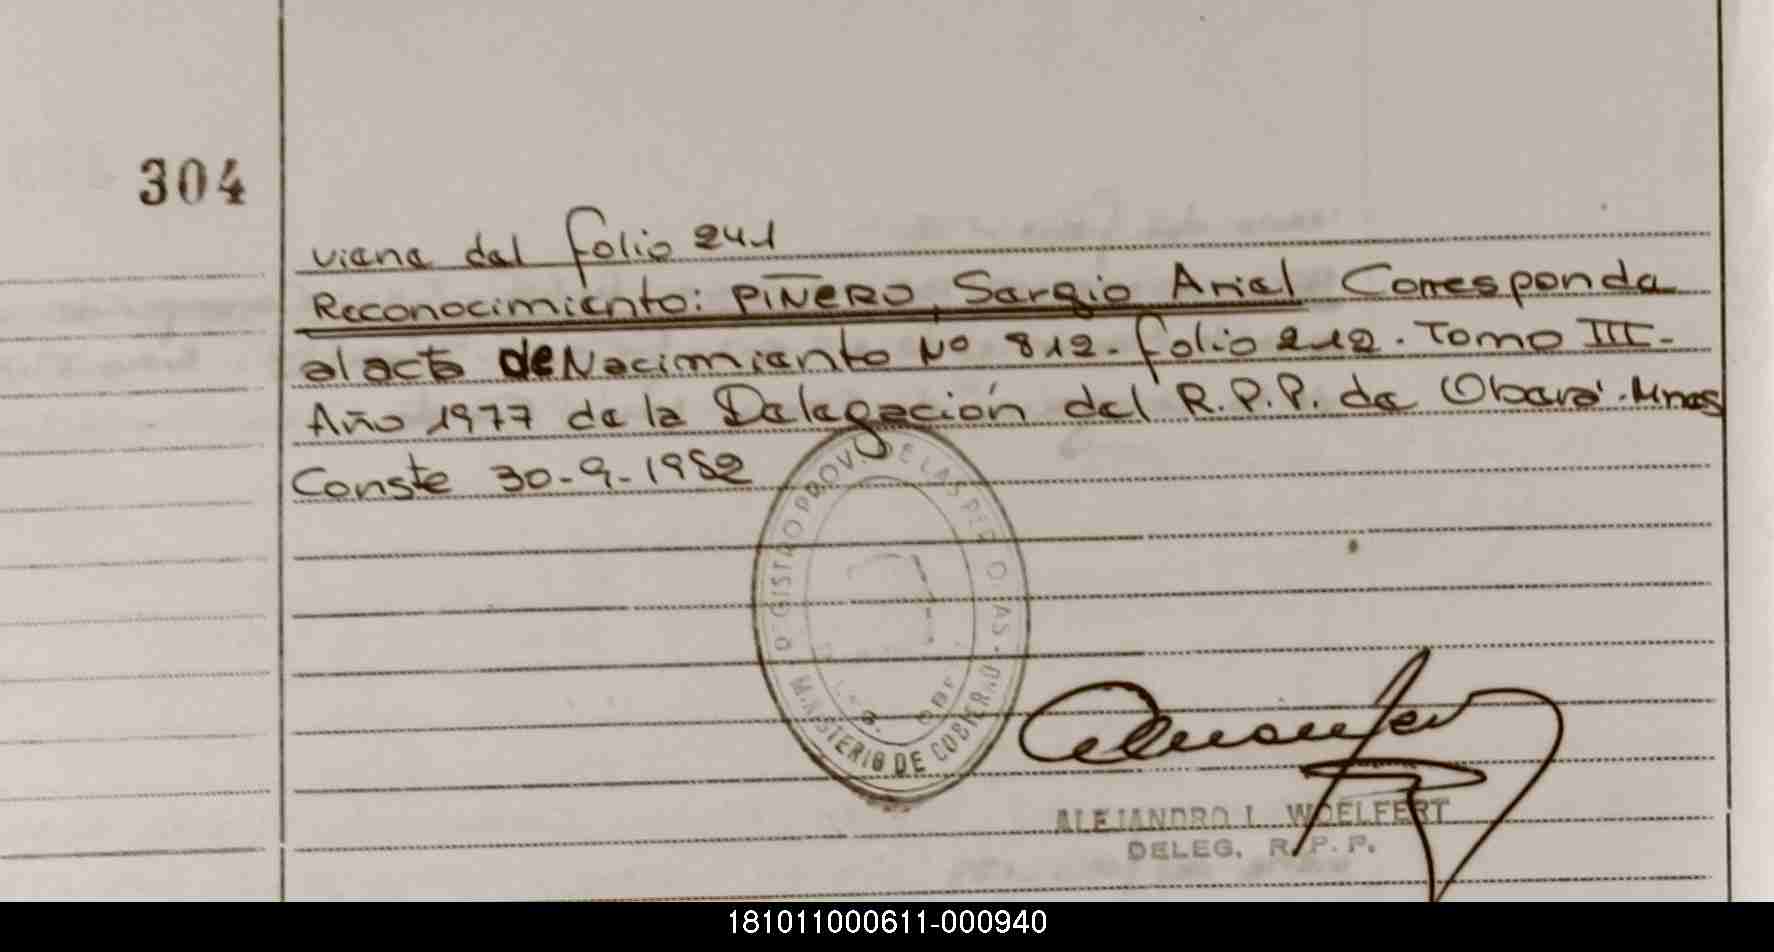 304
viene del folio 241
Reconocimiento: PIÑERO, Sergio Ariel Corresponde
al acta de Nacimiento Nº 812. folio 212. Tomo III-
Año 1977 de la Delegación del R.P.P. de Oberá. Mnes
Conste 30-9-1982
REGISTRO PROV. DE LAS PERSONAS
MINISTERIO DE GOBIERNO
ALEJANDRO L. WOELFERT
DELEG. R.P.P.
181011000611-000940